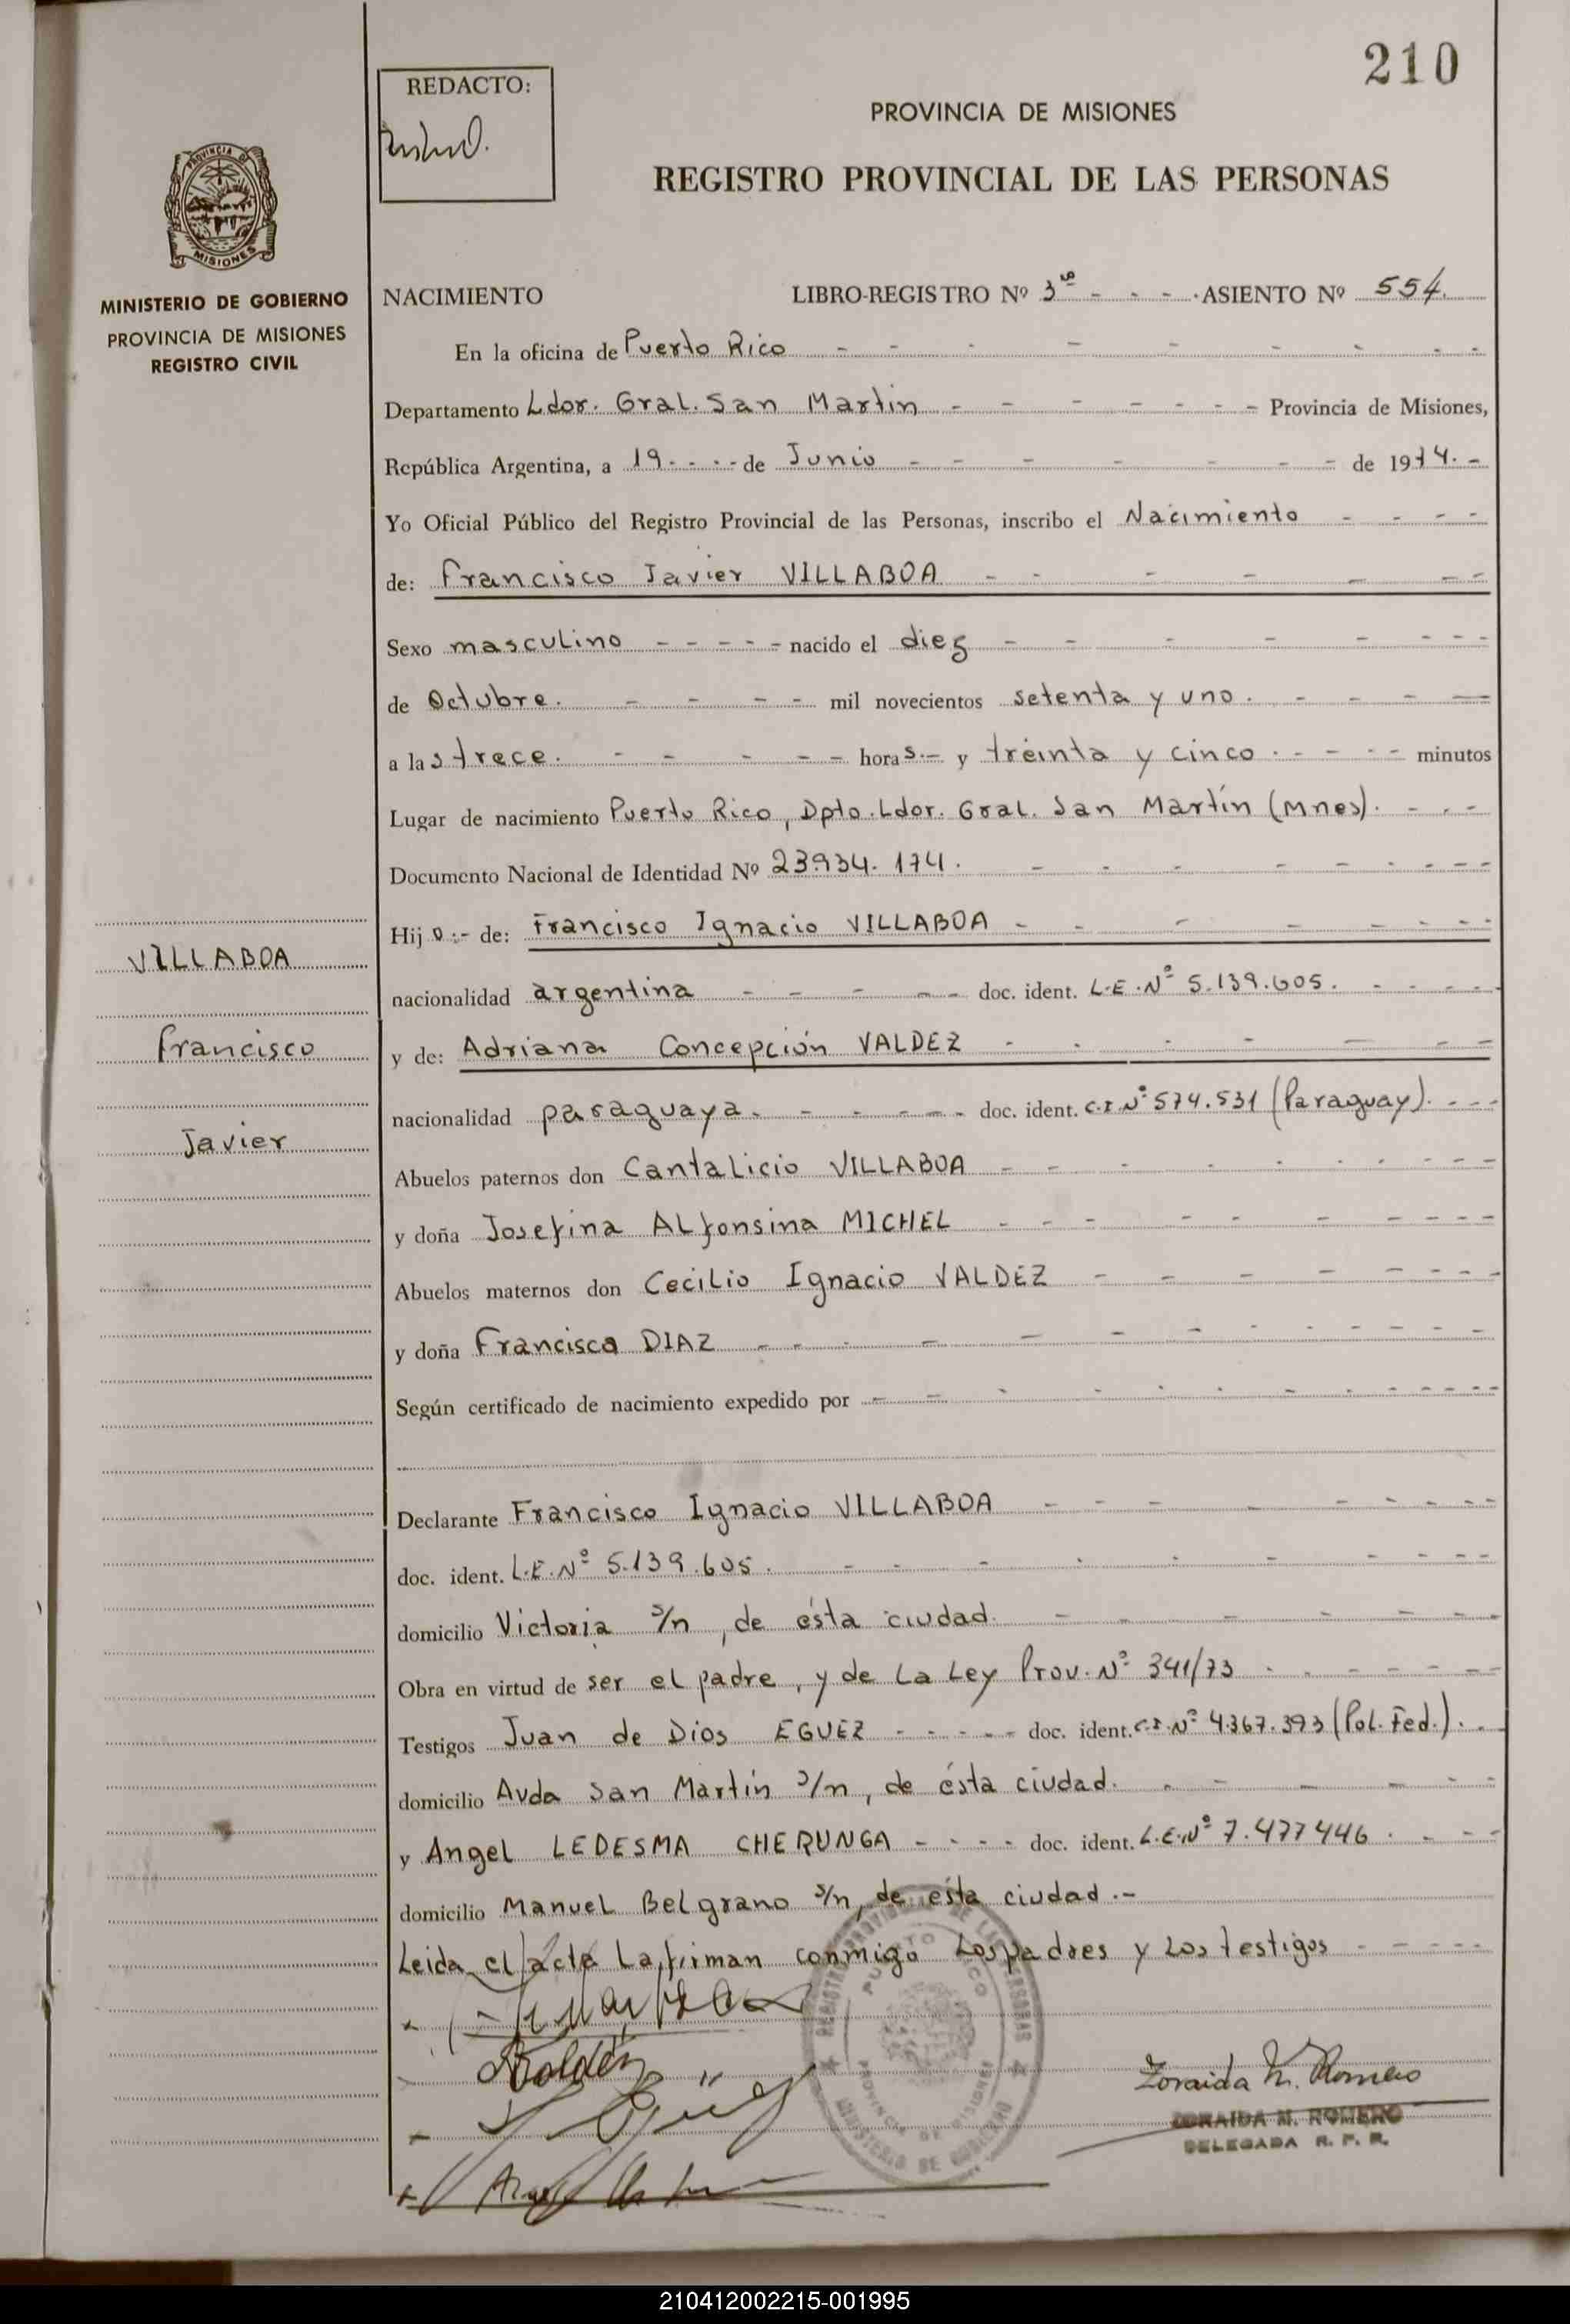 210
REDACTO:
PROVINCIA DE MISIONES
REGISTRO PROVINCIAL DE LAS PERSONAS
PROVINCIA DE
MISIONES
MINISTERIO DE GOBIERNO
PROVINCIA DE MISIONES
REGISTRO CIVIL
NACIMIENTO LIBRO-REGISTRO Nº 3º - - - - ASIENTO Nº 554.
En la oficina de Puerto Rico
Departamento Ldor. Gral. San Martin - - - Provincia de Misiones,
República Argentina, a 19 - - - de Junio - - - de 1974. -
Yo Oficial Público del Registro Provincial de las Personas, inscribo el Nacimiento
de: Francisco Javier VILLABOA
Sexo masculino - - - nacido el diez
de Octubre. - - - mil novecientos setenta y uno.
a las trece. - - - horas.- y treinta y cinco - - - minutos
Lugar de nacimiento Puerto Rico, Dpto. Ldor. Gral. San Martín (Mnes).
Documento Nacional de Identidad Nº 23.934.174.
Hijo.- de: Francisco Ignacio VILLABOA
nacionalidad argentina - - - doc. ident. L.E.Nº 5.139.605.
y de: Adriana Concepción VALDEZ
nacionalidad paraguaya. - - - doc. ident. C.I.Nº 574.531 (Paraguay).
Abuelos paternos don Cantalicio VILLABOA
y doña Josefina Alfonsina MICHEL
Abuelos maternos don Cecilio Ignacio VALDEZ
y doña Francisca DIAZ
Según certificado de nacimiento expedido por
Declarante Francisco Ignacio VILLABOA
doc. ident. L.E.Nº 5.139.605.
domicilio Victoria s/n, de ésta ciudad.
Obra en virtud de ser el padre, y de La Ley Prov. Nº 341/73
Testigos Juan de Dios EGUEZ - - - doc. ident. C.I.Nº 4.367.393 (Pol. Fed.).
domicilio Avda San Martín s/n, de ésta ciudad.
y Angel LEDESMA CHERUNGA - - - doc. ident. L.E.Nº 7.477446.
domicilio Manuel Belgrano s/n, de ésta ciudad.-
Leida el acta La firman conmigo Los padres y Los testigos
VILLABOA
Francisco
Javier
REGISTRO PROVINCIAL DE LAS PERSONAS
PUERTO RICO
PROVINCIA DE MISIONES
MINISTERIO DE GOBIERNO
Zoraida M. Romero
ZORAIDA M. ROMERO
DELEGADA R. P. P.
210412002215-001995